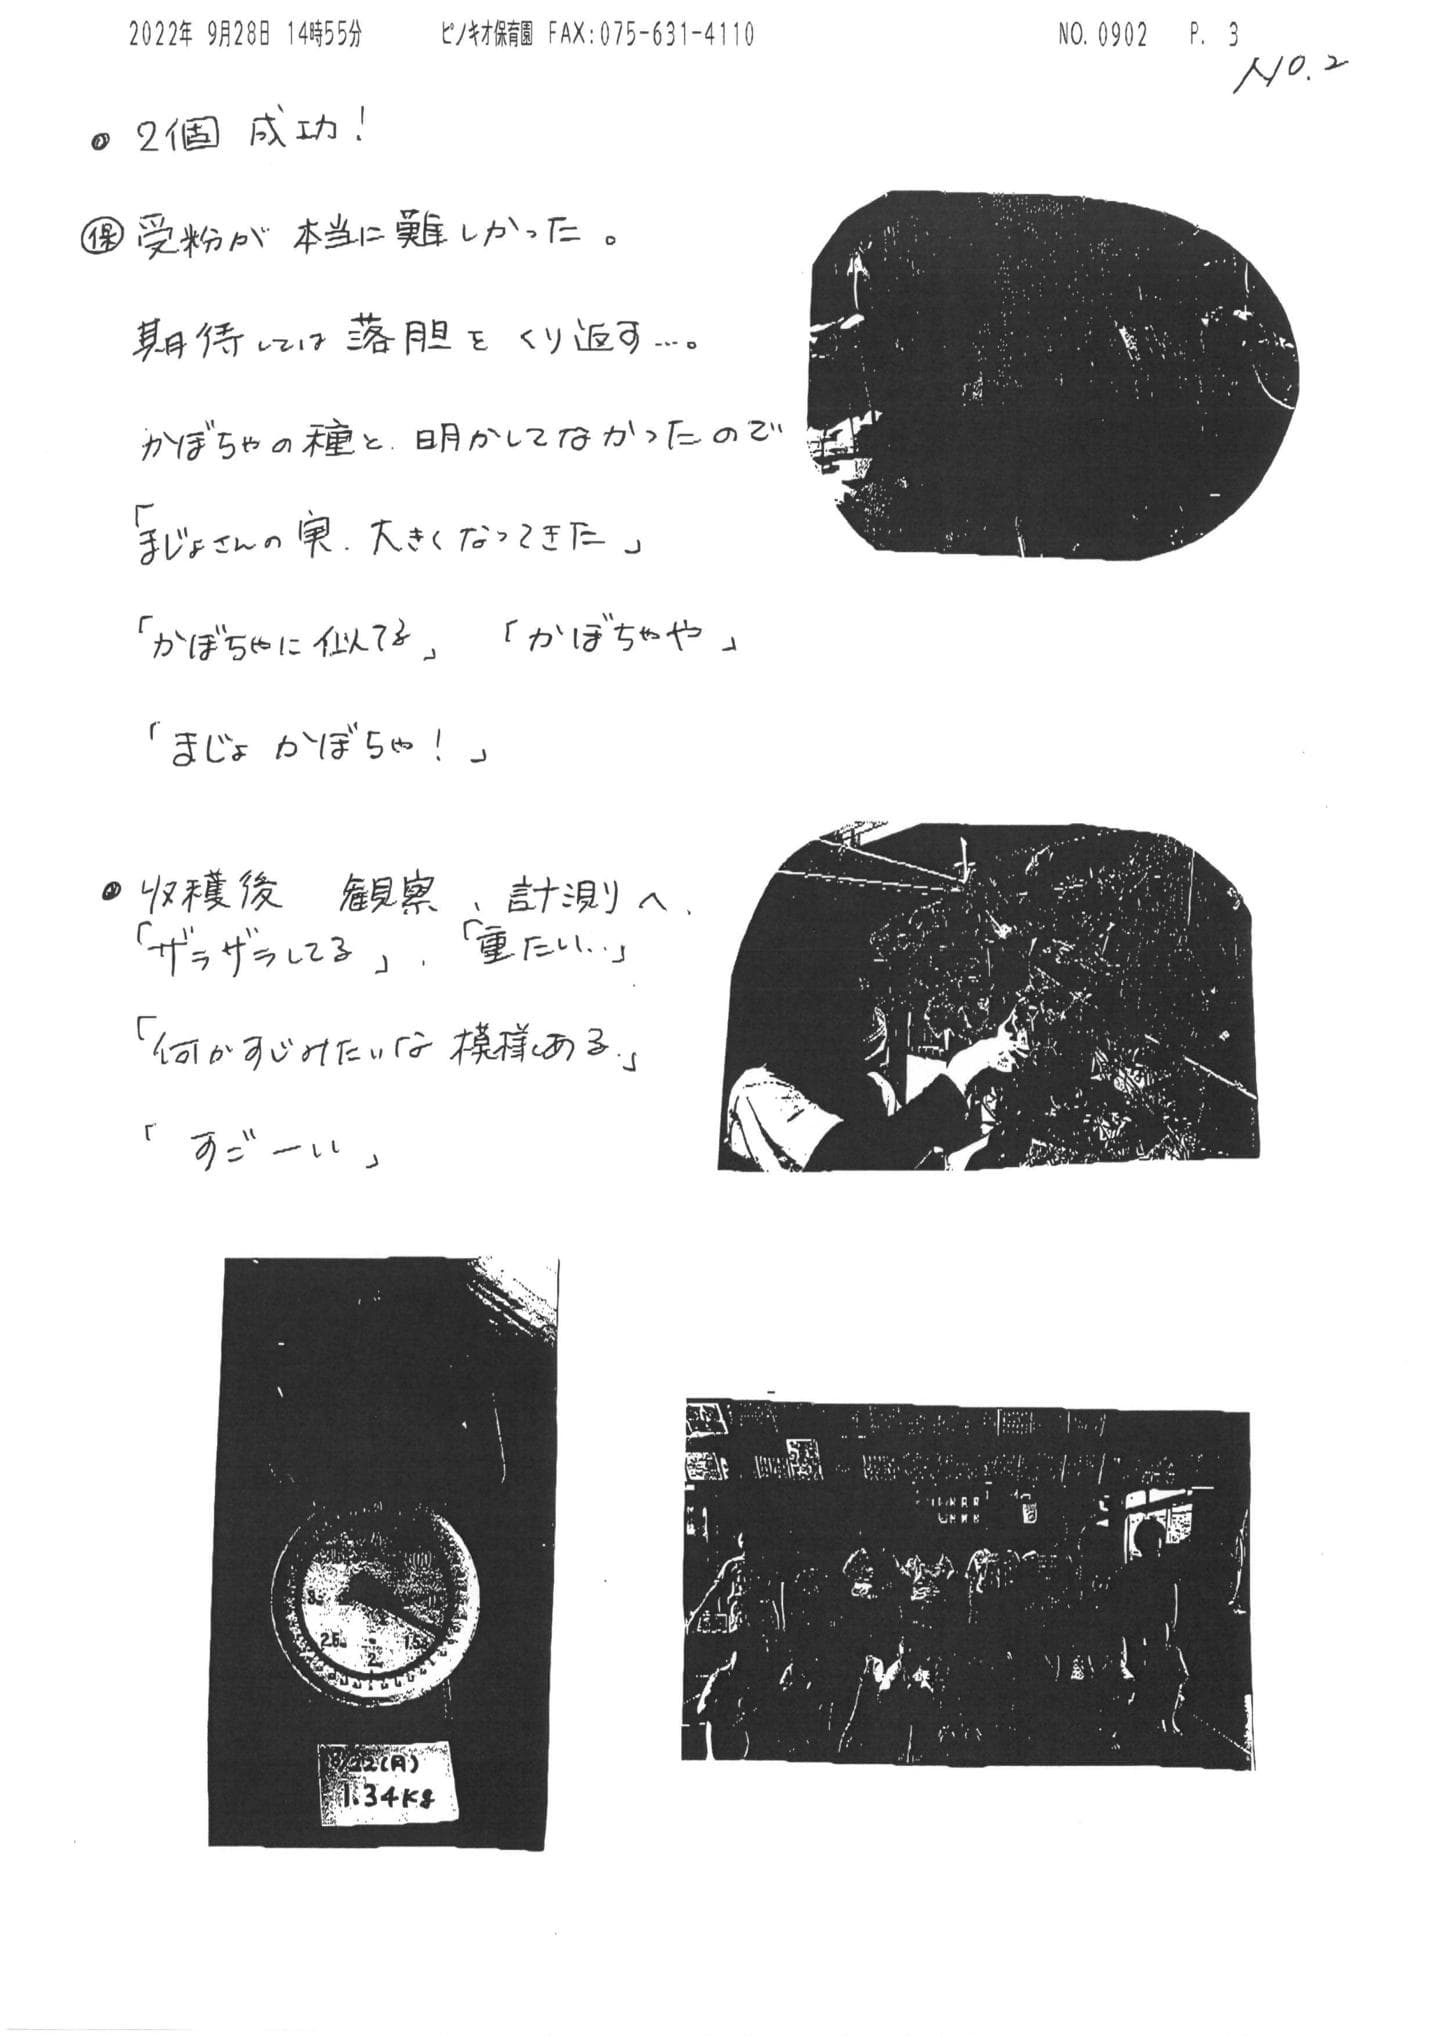 2022年 9月28日 14時55分 ピノキオ保育園 FAX:075-631-4110 NO.0902 P. 3
NO.2
● 2個 成功!
㊝ 受粉が 本当に難しかった。
期待しては 落胆を くり返す…。
かぼちゃの種と、明かしてなかったので
「まじょさんの実、大きくなってきた」
「かぼちゃに似てる」 「かぼちゃや」
「まじょ かぼちゃ!」
● 収穫後 観察、計測へ、
「ザラザラしてる」、「重たい…」
「何かすじみたいな 模様ある。」
「すごーい」
2.5
2
1.5
8/22(月)
1.34kg